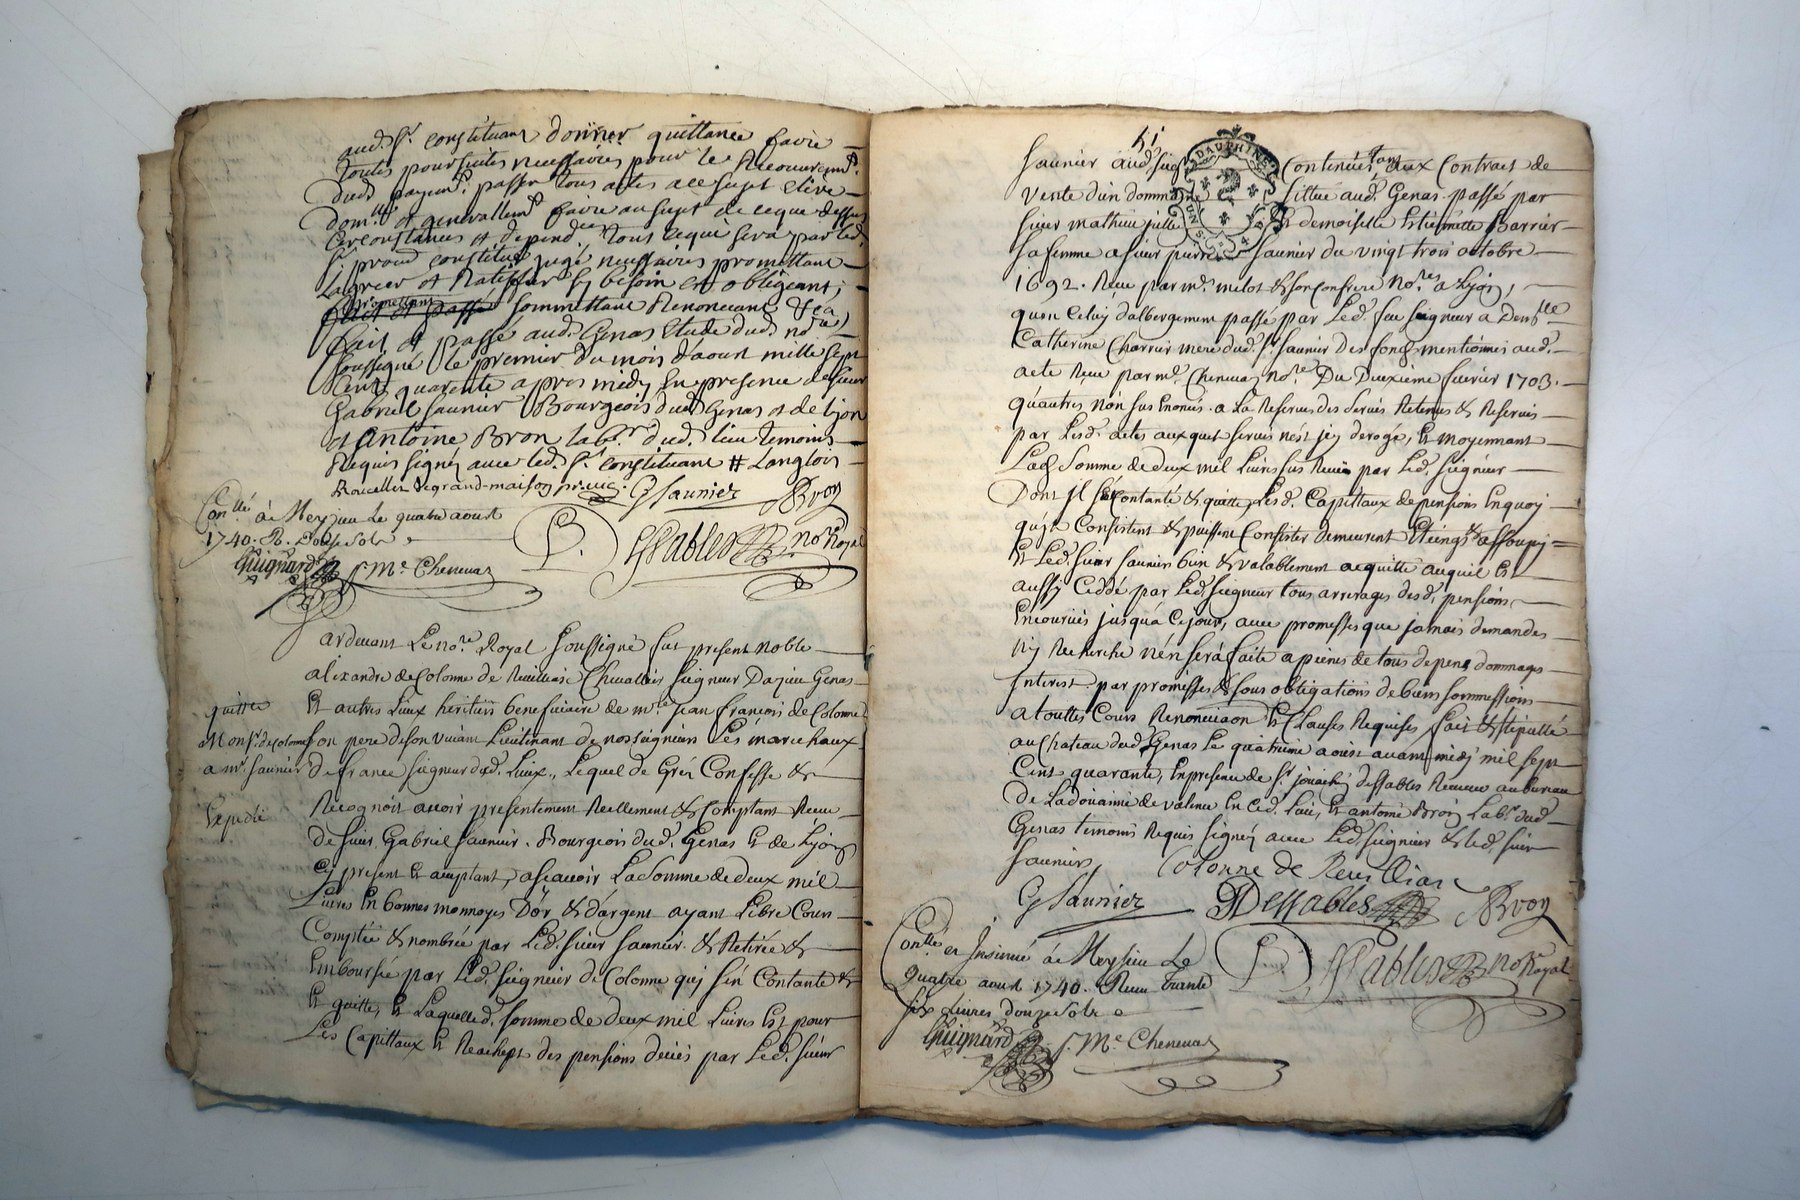 aud. Sr. constituant donner quittance faire
toutes poursuites necessaires pour le Recouvremt.
dud. payemt. passer tous actes a ce sujet elire
domlle. et generallemt. faire au sujet de ce que dessus
circonstances et depend.ces tout ce qui sera par led.
Sr. constitué jugé necessaires promettant
Lagreer et Ratiffier sy besoin est obligeant,
promettant
fait et passé sommettant Renonceant &ca
fait et passé aud. Genas Etude dud. nore.
soussigné le premier du mois d'aoust mille sept
Cent quarante apres midy En presence de sieur
Gabriel Saunier Bourgeois dud. Genas et de Lyon
et Antoine Bron labr. dud. lieu temoins
Requis signéz avec led. Sr. constituant # Langlois
Rouellet de grand-maison
GSaunier ABron
Conllé à Meyzieu Le quatre aoust
1740. R. Douze Sols
Guignard S. Me Chenevas
Dessables nore Royal
Pardevant Le nore. Royal soussigné fut present noble
alixandre de Colonne de Chevallier seigneur Dazieu Genas
quittce
Et autres Lieux heritier beneficiaire de mre. Jean francois de Colonne
a Monsr. de Colonne
son pere de son vivant Lieutenant de nosseigneurs Les marechaux
a mr. Saunier
de france seigneur dud. Lieux, Lequel de Gréz Confesse &
Expedié
Recognoit avoir presentement Reellement & Comptant Receu
de sieur Gabriel Saunier. Bourgeois dud. Genas Et de Lyon
Cy present Et acceptant, ascavoir La Somme de deux mil
Livres En bonnes monnoyes D'or & d'argent ayant Libre Cours
Comptée & nombrée par Led. sieur Saunier & Retirée &
Emboursée par Led. seigneur de Colonne qui s'en Contante &
Et quitte, Et Laquelle d. somme de deux mil Livres Est pour
Les Capittaux Et Reachept des pensions deües par Led. sieur
51
DAUPHINE
Saunier aud. Contenües tant aux Contract de
Vente d'un dommaine Sittué aud. Genas passé par
sieur mathieu Et demoiselle Estiennette Barrier
sa femme a sieur pierre Saunier du vingt trois octobre
1692. Receu par me. milot & son confrere nores a Lyon,
qu'en Celuy d'albergement passé par Led. feu seigneur a Demlle
Catherine Charrier mere dud. Sr. Saunier Des fonds mentionnés aud.
acte Receu par me. Chenevas nore. Du Deuxieme fevrier 1703.
qu'autres non sus Enoncés a La Reserve des Servis Retenus & Reservés
par Lesd. actes auxquel servis n'est Icy derogé, Et moyennant
Lad. Somme de deux mil Livres sus Receue par Led. seigneur
Dont Il se contanté & quitte Lesd. Capittaux de pensions Enquoy
qu'ils Consistent & puissent Consister demeurent Eteings & assoupis
Et Led. sieur Saunier bien & valablement acquitté auquel Est
aussy Ceddé par Led. seigneur tous arrerages desd. pensions
Encourues jusqu'a Ce jour, avec promesses que jamais demandes
Ny Recherche n'en sera faite a peines de tous depens dommages
Interest par promesses & sous obligations de biens sommissions
a touttes Cours Renonciaon Et Clauses Requises fait & stipullé
au Chateau dud. Genas Le quatrieme aoust avant midy mil sept
Cent quarante, En presence de Sr. Dessables Receveur au bureau
de La douanne de valence En Ced. Lieu, Et antoine Bron Labr. dud.
Genas temoins Requis signéz avec Led. seigneur & led. sieur
Saunier
Colonne de
GSaunier Dessables ABron
Conllé et Insinué à Meyzieu Le
Quatre aoust 1740. Receu trente
six Livres douze Sols
Guignard S. Me Chenevas
Dessables nore Royal